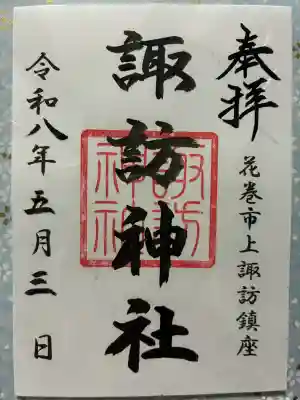 奉拝
花巻市上諏訪鎮座
諏訪神社
諏訪神社
令和八年五月三日